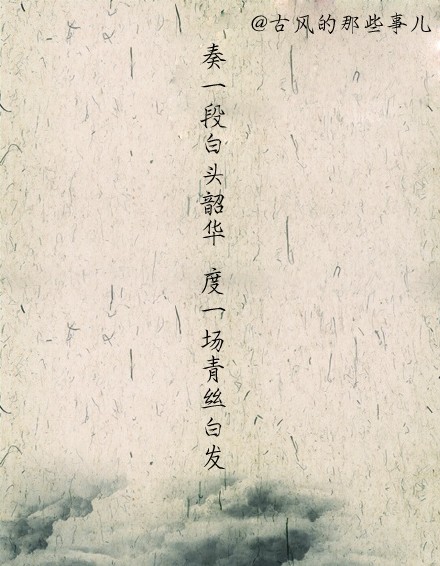 @古风的那些事儿
奏一段白头韶华 度一场青丝白发